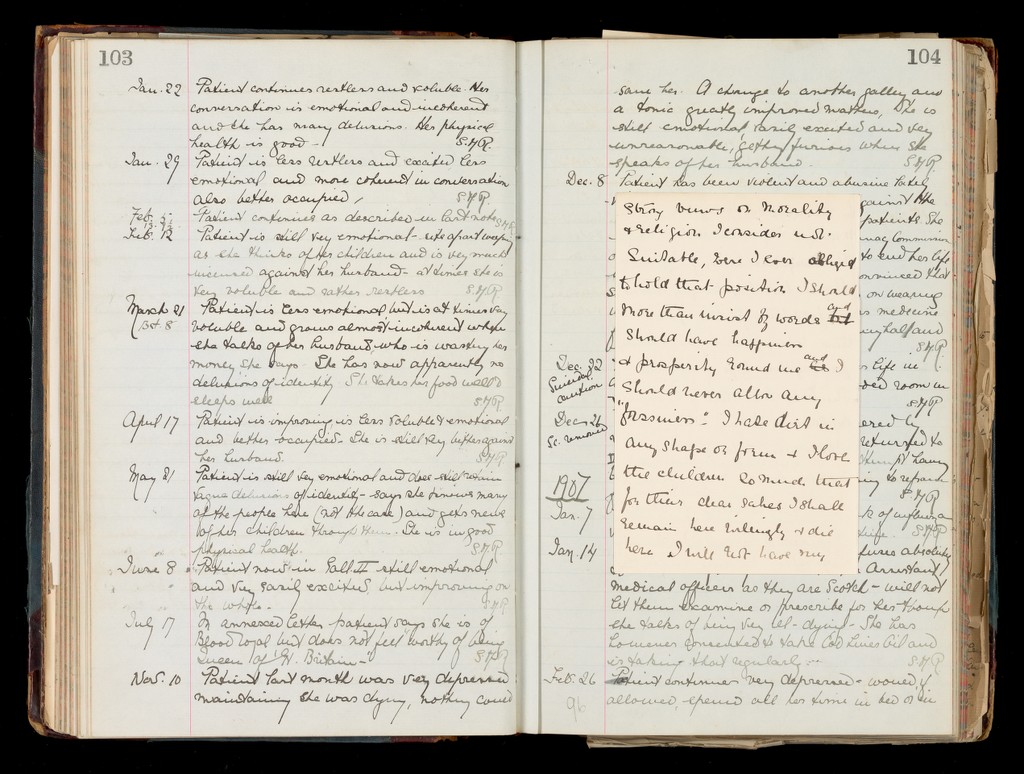 103
Jan. 22 Patient continues restless and voluble. Her
conversation is emotional and incoherent
and she has many delusions. Her physical
health is good -
Jan. 29 Patient is less restless and excited less
emotional and more coherent in conversation
also better occupied,
Feb. Patient continues as described in last note
Feb. 12 Patient is still very emotional - sits apart weeping
as she thinks of her children and is very much
incensed against her husband - at times she is
very voluble and rather restless
March 21 Patient is less emotional but is at times very
voluble and grows almost incoherent when
she talks of her husband, who is wasting her
money she says. She has now apparently no
delusions of identity She takes her food well &
sleeps well
April 17 Patient is improving is less voluble & emotional
and better occupied - She is still very bitter against
her husband.
May 21 Patient is still very emotional and does still retain
vague delusions of identity - says she knows many
of the people here (not the case) and gets news
of her children through them. She is in good
physical health.
June 8 Patient now in Gall. II still emotional
and very easily excited, but improving on
the whole -
July 17 In annexed letter patient says she is of
Blood Royal but does not feel worthy of being
Queen of Gt. Britain -
Nov. 10 Patient last month was very depressed
maintaining she was dying, nothing could
104
save her. A change to another gallery and
a tonic greatly improved matters, She is
still emotional easily excited and very
unreasonable, getting furious when she
speaks of her husband.
Dec. 8 Patient has been violent and abusive lately
against the
patients. She
Commission
to end her life
convinced that
on wearing
medicine
half and
Dec. 22 life in
Suicidal
caution
room in
Dec. 26
Sc. removed
returned to
having
to refrain
1907
Jan. 7 of influenza
Jan. 14 absolutely
Assistant
medical officers as they are Scotch - will not
let them examine or prescribe for her though
she talks of being very ill - dying - She has
however consented to take Cod Liver Oil and
is taking that regularly -
Feb. 26 Patient continues very depressed - would if
allowed, spend all her time in bed or in
96
Strong views on Morality
& religion I consider not
Suitable, were I ever obliged
to hold that position I should
more than insist by words and
Should have happiness
& prosperity round me and I
Should never allow any
I hate dirt in
any shape or form & I love
the children So much that
for their dear sakes I shall
remain here willingly & die
here I will not have my